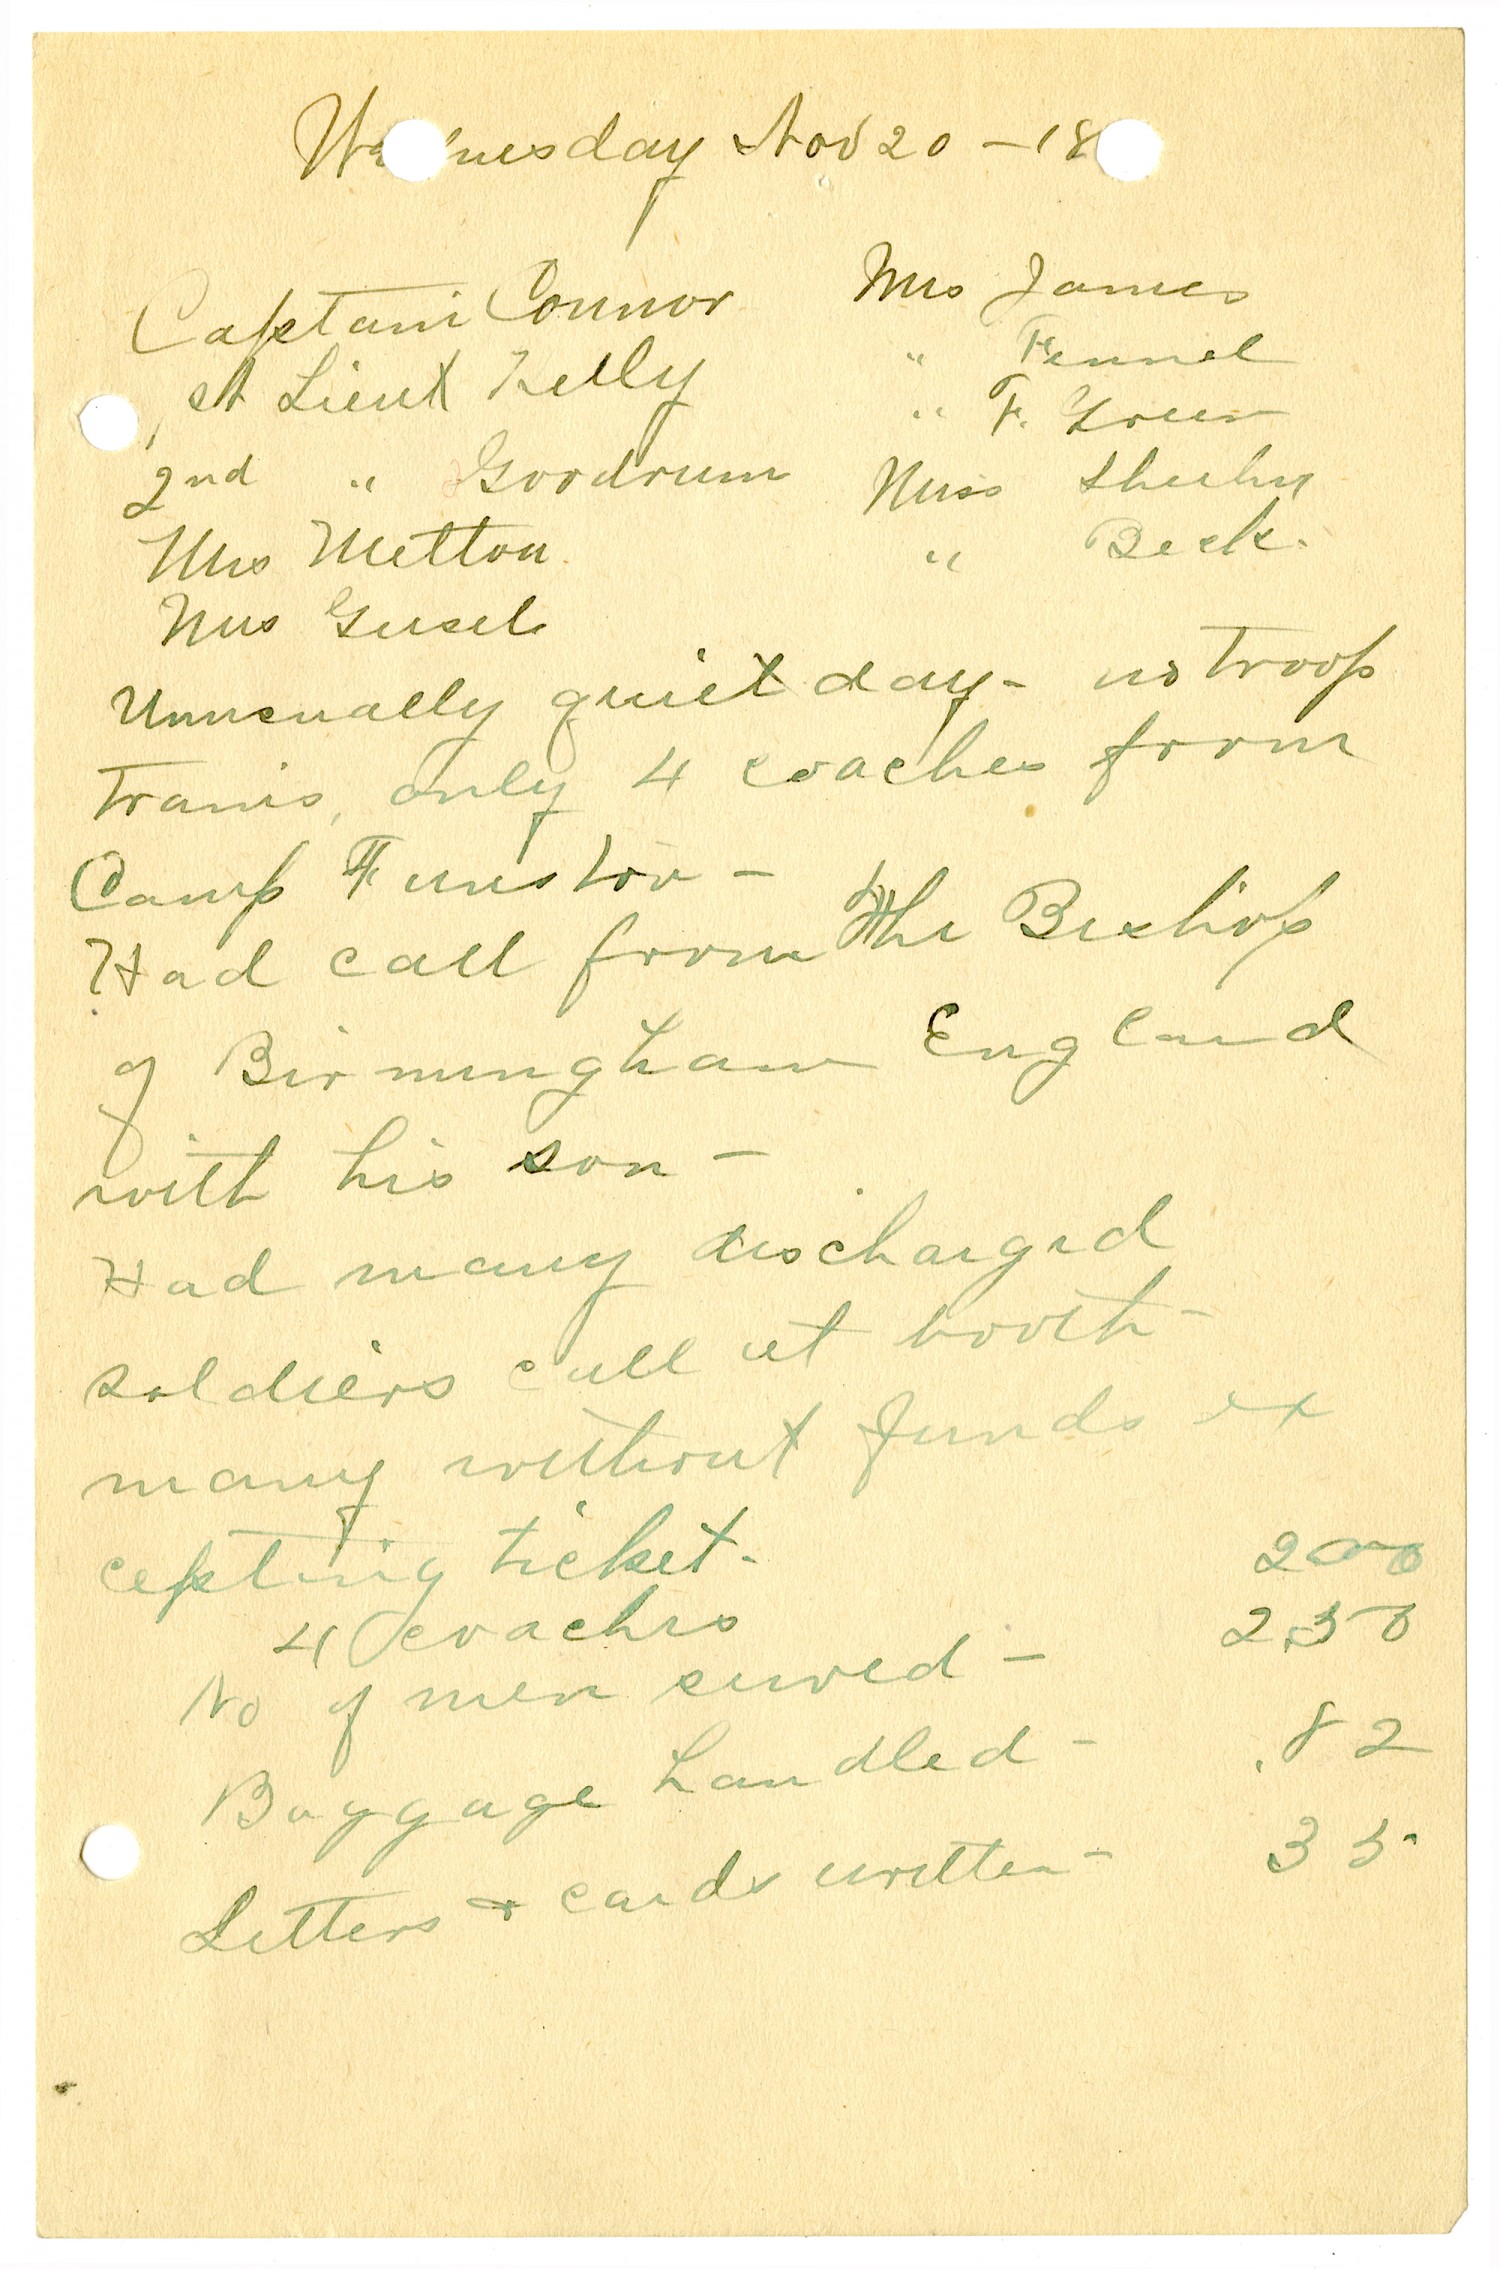 Wednesday Nov 20 - 18
Captain Connor
1st Lieut Kelly
2nd " Goodrum
Mrs Metton
Mrs Gusel
Mrs James
" Fennel
" F. Green
Miss Sheehy
" Beck.
Unusually quiet day - no troop
trains, only 4 coaches from
Camp Funston -
Had call from The Bishop
of Birmingham England
with his son -
Had many discharged
soldiers call at booth -
many without funds ex
cepting ticket -
4 coaches 200
No of men served - 250
Baggage handled - 82
Letters & cards written - 35